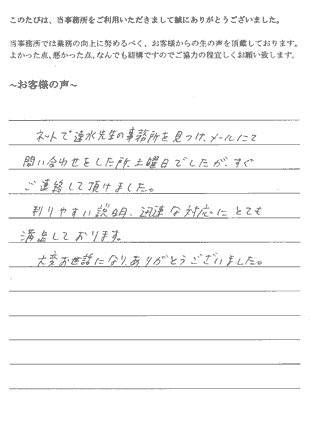 このたびは、当事務所をご利用いただきまして誠にありがとうございました。
当事務所では業務の向上に努めるべく、お客様からの生の声を頂戴しております。
よかった点、悪かった点、なんでも結構ですのでご協力の程宜しくお願い致します。
~お客様の声~
ネットで速水先生の事務所を見つけ、メールにて
問い合わせをした所、土曜日でしたが、すぐ
ご連絡して頂けました。
判りやすい説明、迅速な対応にとても
満足しております。
大変お世話になり、ありがとうございました。